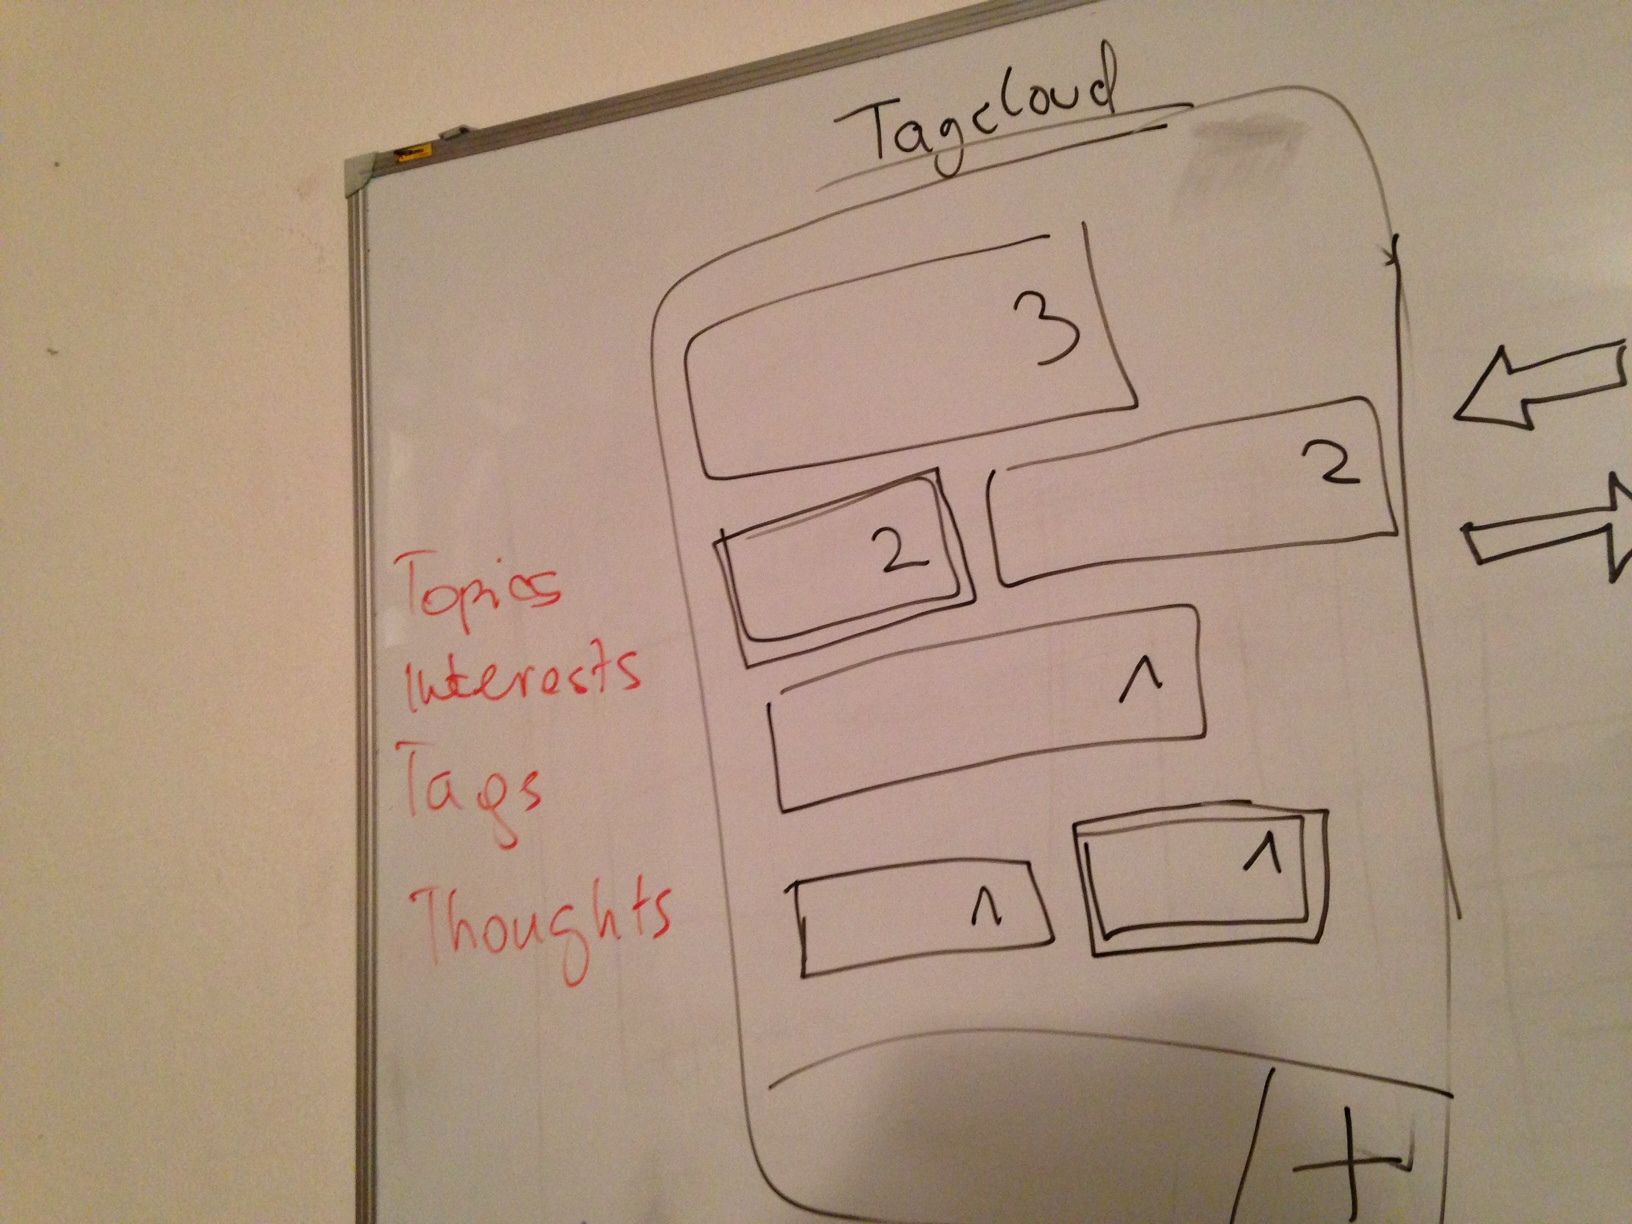 Tagcloud
3
2
2
Topics
Interests
1
Tags
1
1
Thoughts
+